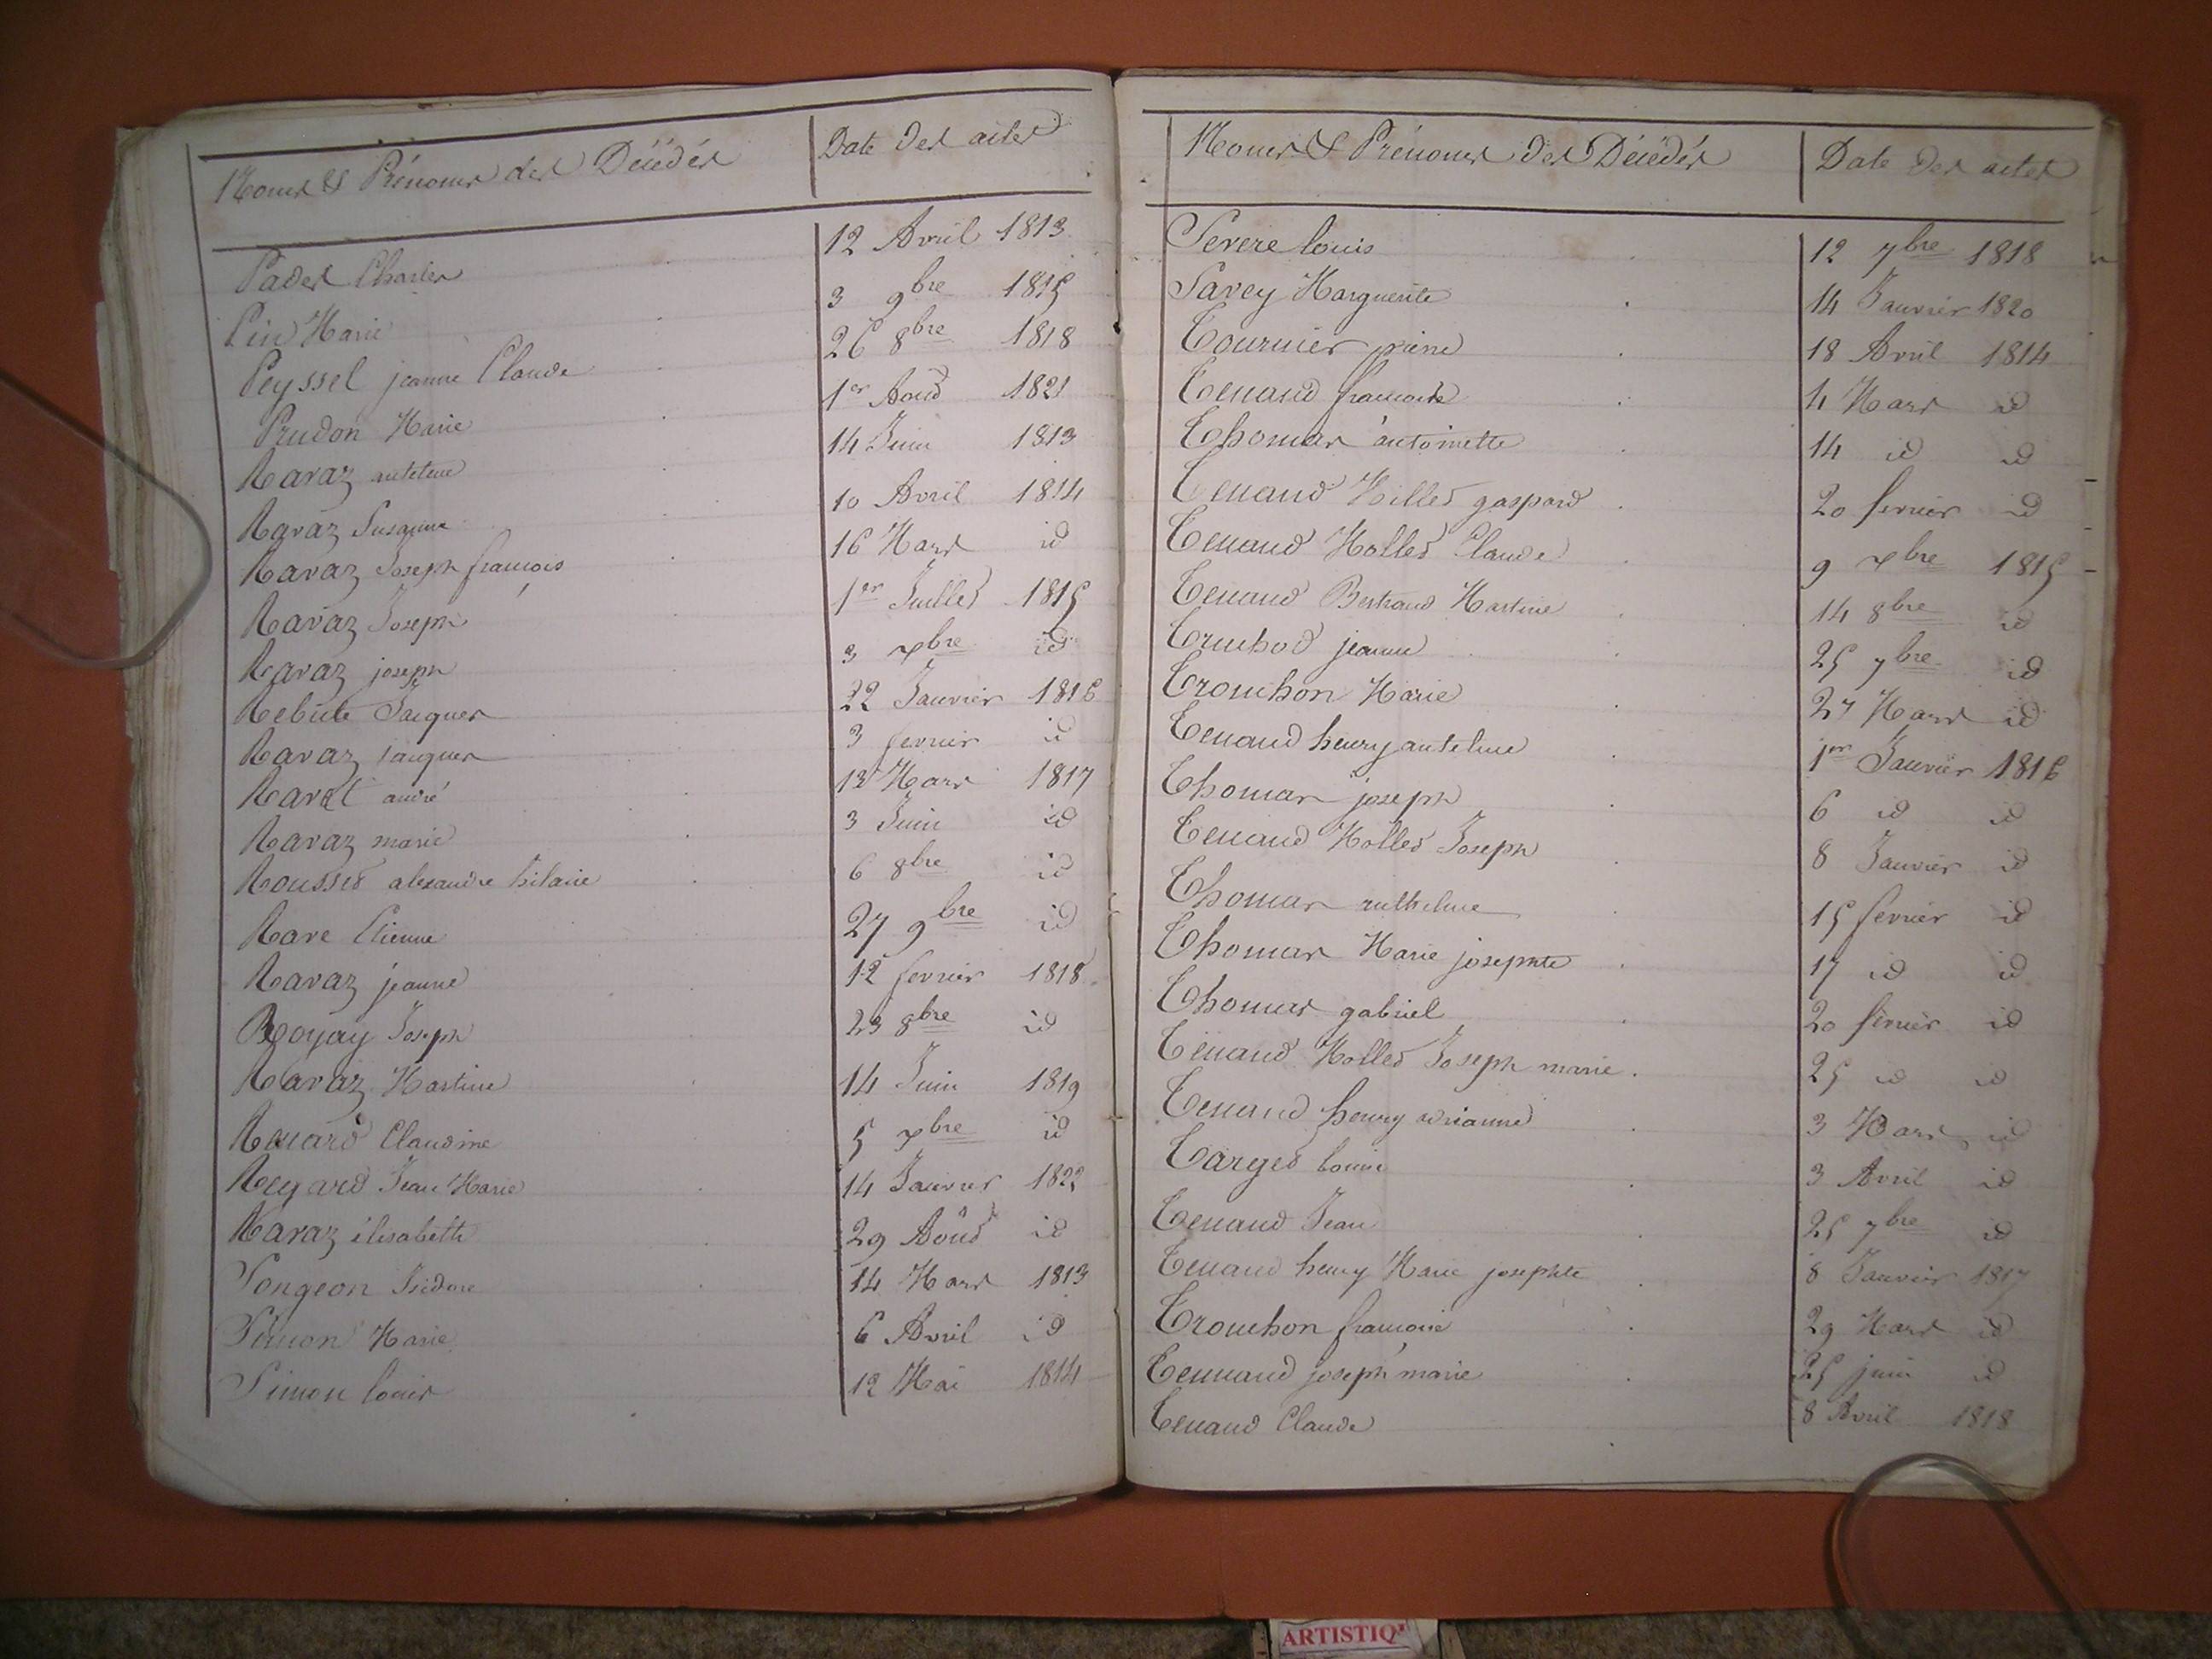 Noms & Prénoms des Décédés Date des actes
Pader Charles 12 Avril 1813
Pin Marie 3 9bre 1815
Peyssel jeanne Claude 26 8bre 1818
Prudon Marie 1er Aoud 1821
Ravaz antelme 14 Juin 1813
Ravaz Susanne 10 Avril 1814
Ravaz Joseph francois 16 Mars id
Ravaz Joseph 1er Juilled 1815
Ravaz joseph 3 xbre id
Rebute Jacques 22 Janvier 1816
Ravaz jacques 3 fevrier id
Ravat andré 12 Mars 1817
Ravaz marie 3 Juin id
Roussed alexandre hilaire 6 8bre id
Rave Etienne 27 9bre id
Ravaz jeanne 12 fevrier 1818
Rojay Joseph 23 8bre id
Ravaz Martine 14 Juin 1819
Renard Claudine 5 xbre id
Reyard Jean Marie 14 Janvier 1822
Ravaz élisabette 29 Aoûd id
Songeon Isidore 14 Mars 1813
Simon Marie 6 Avril id
Simon louis 12 Mai 1814
Noms & Prénoms des Décédés Date des actes
Severe louis 12 7bre 1818
Savey Marguerite 14 Janvier 1820
Tournier 18 Avril 1814
Tenand francoise 4 Mars id
Thomas antoinette 14 id id
Tenand Milled gaspard 20 fevrier id
Tenand Molled Claude 9 xbre 1815
Tenand Bertrand Martine 14 8bre id
Truchod jeanne 25 7bre id
Tronchon Marie 27 Mars id
Tenand henry antelme 1er Janvier 1816
Thomas joseph 6 id id
Tenand Molled Joseph 8 Janvier id
Thomas anthelme 15 fevrier id
Thomas Marie josephte 17 id id
Thomas gabriel 20 fevrier id
Tenand Molled Joseph marie 25 id id
Tenand henry adrianne 3 Mars id
Targed louise 3 Avril id
Tenand Jean 25 7bre id
Tenand henry Marie josephte 8 Janvier 1817
Tronchon francoise 29 Mars id
Tennand joseph marie 25 juin id
Tenand Claude 8 Avril 1818
ARTISTIQ